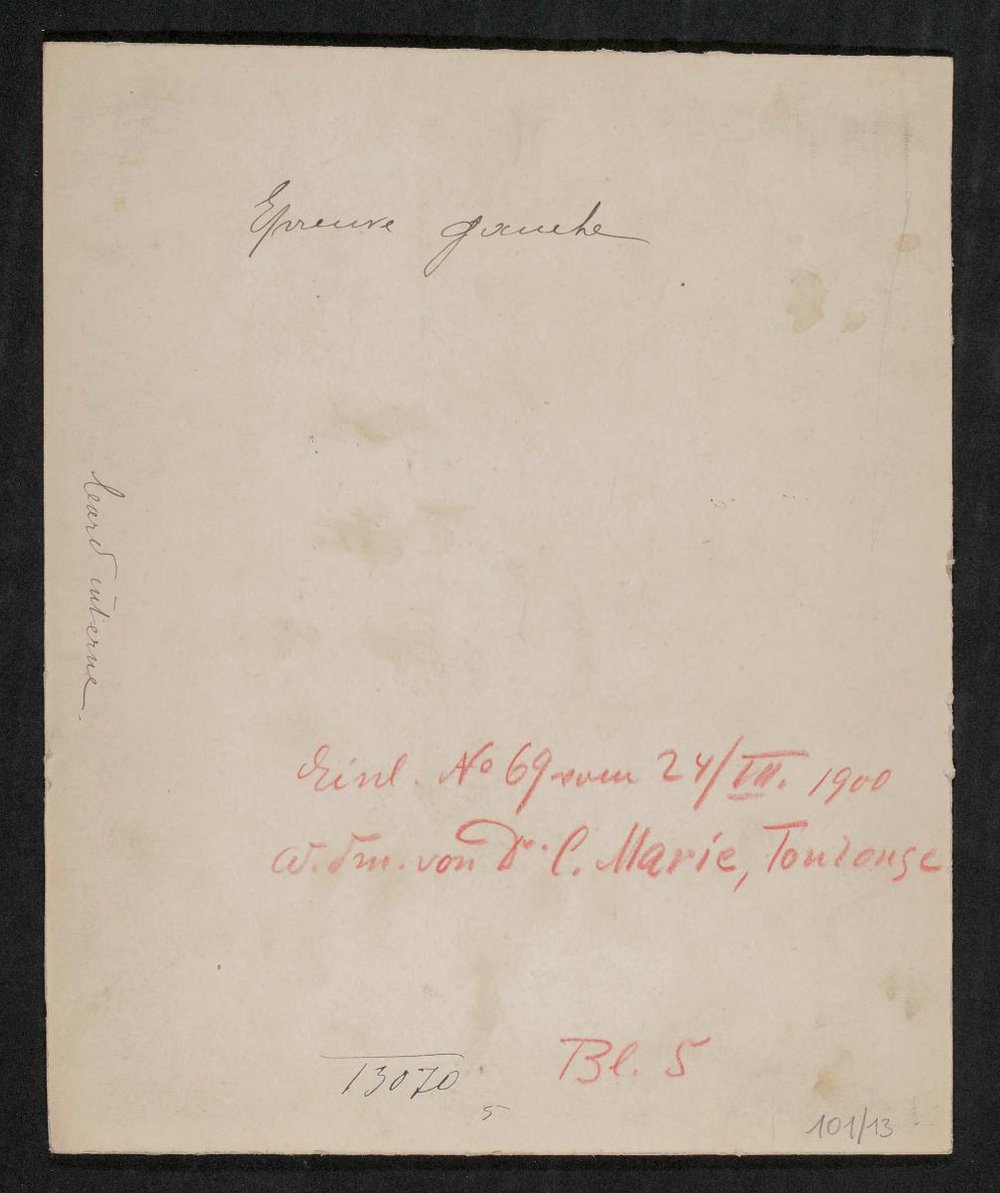 Epreuve gauche
bord interne.
Einl. No 69 vom 24/VII. 1900
von Dr. C. Marie, Toulouse
13070
5
Bl. 5
101/13